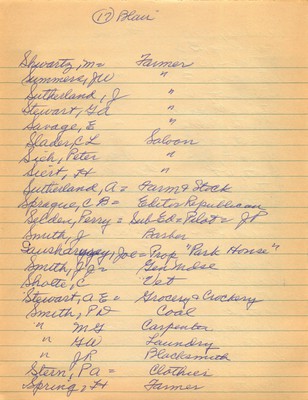 (17) Blair
Shwartz, M = Farmer
Summers, JW "
Sutherland, J "
Stewart, Gd "
Savage, E "
Slader, C L Saloon
Sieh, Peter "
Siert, H "
Sutherland, A = Farm & Stock
Sprague, C B = Editor Republican
Selden, Perry = Sub Ed = Pilot = JP
Smith, J Barber
Joe = Prop "Park House"
Smith, J J = Gen Mdse
Sholte, C Vet
Stewart, A E = Grocery & Crockery
Smith, P D Coal
" M G Carpenter
" G W Laundry
" J R Blacksmith
Stern, P a = Clothier
Spring, H Farmer